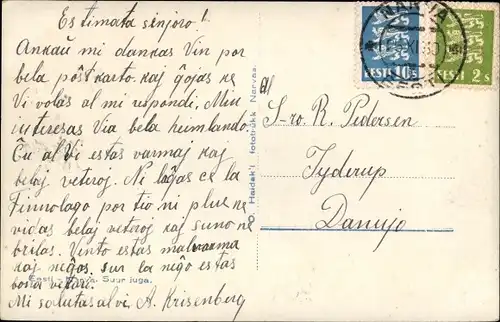 Estimata sinjoro!
Ankaŭ mi dankas Vin por
bela poŝtkarto kaj ĝojas ke
Vi volas al mi respondi. Min
interesas Via bela heimlando.
Ĉu al Vi estas varmaj kaj
belaj veteroj. Ni loĝas ce la
Finnolago por tio ni plur ne
vidas belaj veteroj kaj suno ne
brilas. Vinto estas malvarma
kaj neĝas. sur la neĝo estas
bona
Mi salutas al vi. A. Krisenberg
Eesti - Suur juga.
O. Haidak'i fototrükk Narvas.
NARVA
XI 30
EESTI 10 S
EESTI 2 S
S-ro. R. Pedersen
Tyderup
Danujo